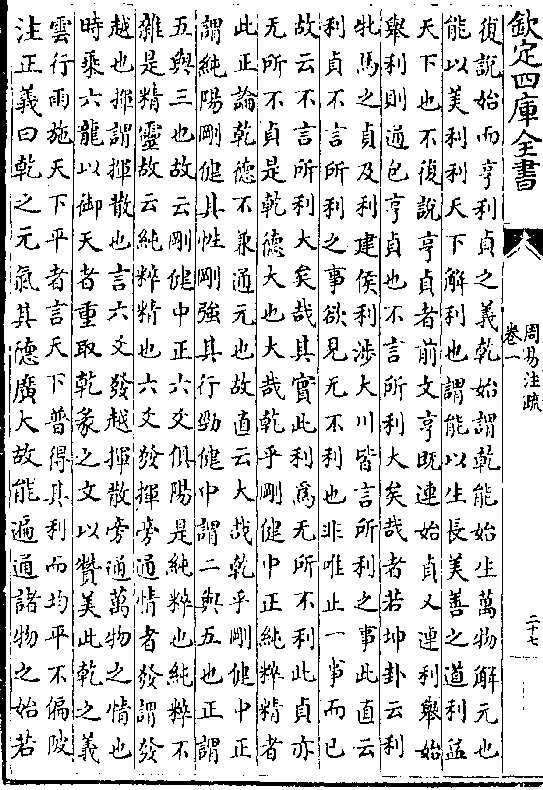 欽定四庫全書
周易注疏
卷一
二十七
復說始而亨利貞之義乾始謂乾能始生萬物解元也
能以美利利天下解利也謂能以生長美善之道利益
天下也不復說亨貞者前文亨既連始貞又連利舉始
舉利則通包亨貞也不言所利大矣哉者若坤卦云利
牝馬之貞及利建侯利涉大川皆言所利之事此直云
利貞不言所利之事欲見无不利也非唯止一事而已
故云不言所利大矣哉其實此利為无所不利此貞亦
无所不貞是乾德大也大哉乾乎剛健中正純粹精者
此正論乾德不兼通元也故直云大哉乾乎剛健中正
謂純陽剛健其性剛強其行勁健中謂二與五也正謂
五與三也故云剛健中正六爻俱陽是純粹也純粹不
雜是精靈故云純粹精也六爻發揮旁通情者發謂發
越也揮謂揮散也言六爻發越揮散旁通萬物之情也
時乘六龍以御天者重取乾彖之文以贊美此乾之義
雲行雨施天下平者言天下普得其利而均平不偏陂
注正義曰乾之元氣其德廣大故能遍通諸物之始若